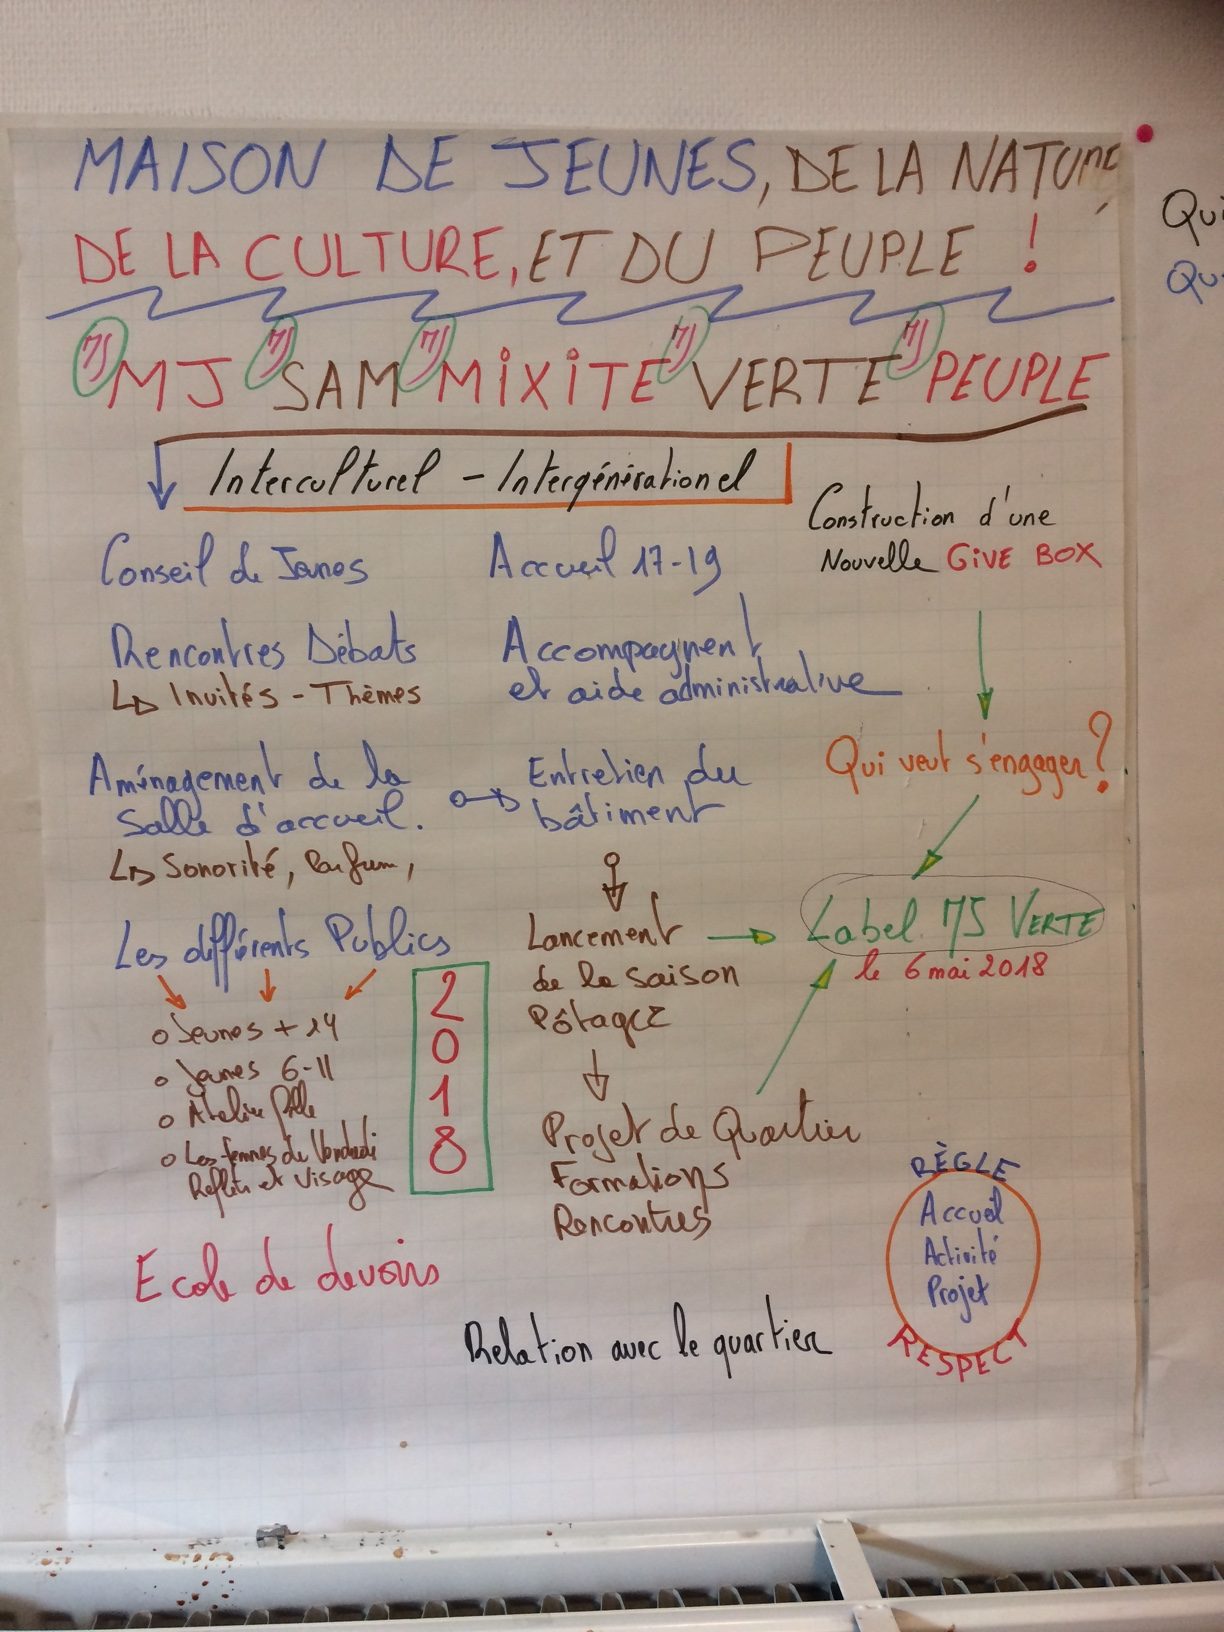 MAISON DE JEUNES, DE LA NATURE,
DE LA CULTURE, ET DU PEUPLE !
MJ MJ MJ MJ MJ
MJ SAM MiXiTE VERTE PEUPLE
Interculturel - Intergénérationel
Construction d'une
Nouvelle GiVE BOX
Qui veut s'engager ?
Label MJ VERTE
le 6 mai 2018
Conseil de Jeunes
Rencontres Débats
Invités - Thèmes
Aménagement de la
Salle d'accueil.
Sonorité, Parfum,
Les différents Publics
Jeunes + 14
Jeunes 6-11
Atelier fille
Les femmes du Vendredi
Reflets et visage
2018
Ecole de devoirs
Accueil 17-19
Accompagnent
et aide administrative
Entretien du
bâtiment
Lancement
de la saison
Pôtagez
Projet de Quartier
Formations
Rencontres
Relation avec le quartier
RÈGLE
Accueil
Activité
Projet
RESPECT
Qui